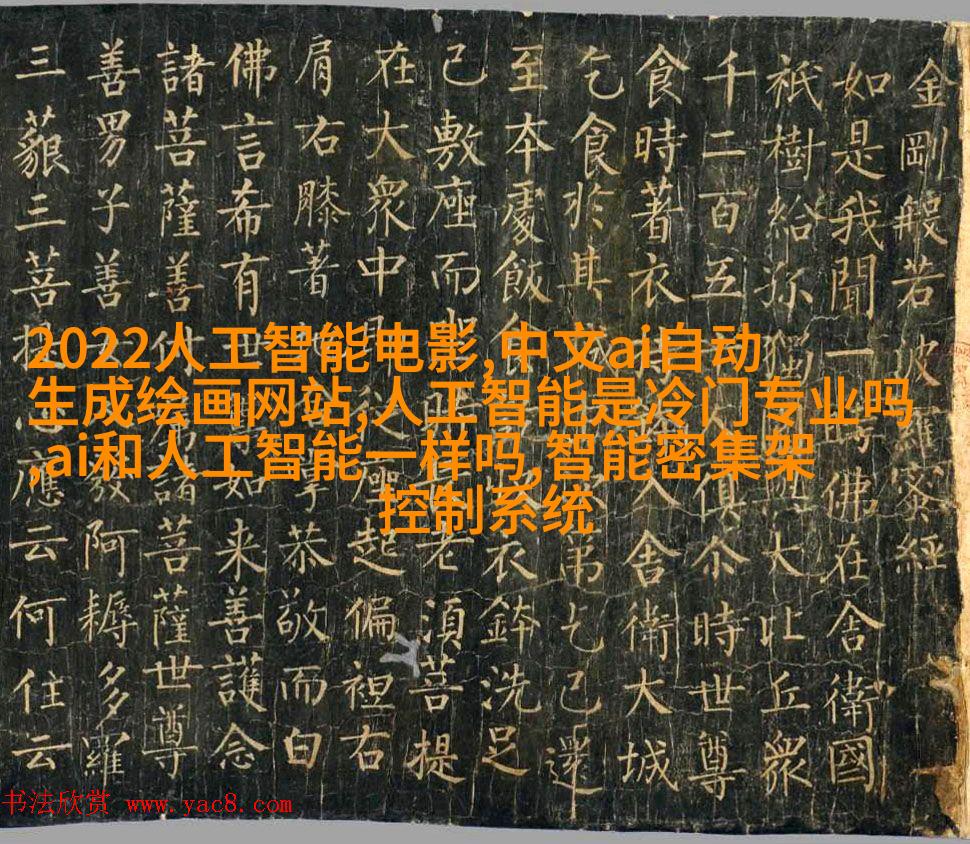 金剛般若波羅蜜經
如是我聞一時佛在舍衛國
祇樹給孤獨大比丘眾
千二百五人俱尒時世尊
食時著衣入舍衛大城
乞食於其弟乞已還
至本處飯食衣鉢洗足
已敷座而坐老須菩提
在大眾中從座起偏袒右
肩右膝著地掌恭敬而白
佛言希有世尊如来善護念
諸菩薩善付囑諸菩薩世尊
善男子善女人發阿耨多羅
三藐三菩提心應云何住云
2022人工智能电影,中文ai自动
生成绘画网站,人工智能是冷门专业吗
,ai和人工智能一样吗,智能密集架
控制系统
书法欣赏 www.yac8.com